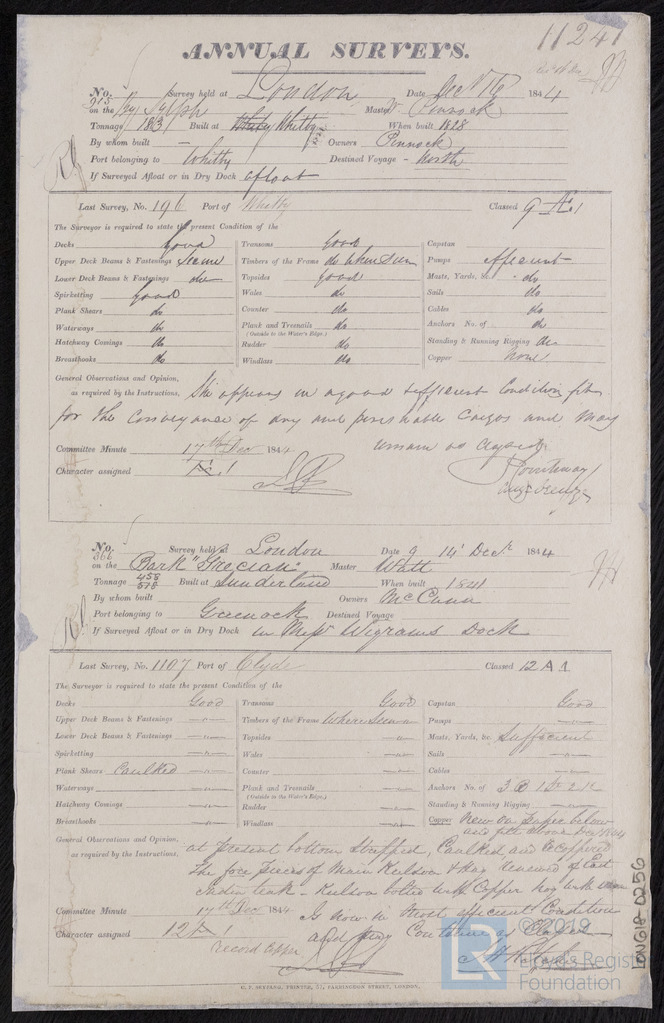 11241
ANNUAL SURVEYS.
No. 215 Survey held at London Date Dec 16 1844
on the Sylph Master W. Pinnock
Tonnage 183 Built at Whitby When built 1828
By whom built — Owners Pinnock
Port belonging to Whitby Destined Voyage - North
If Surveyed Afloat or in Dry Dock afloat
Last Survey, No. 196 Port of Whitby Classed 9 Æ 1
The Surveyor is required to state the present Condition of the
Decks Good Transoms Good Capstan
Upper Deck Beams & Fastenings Secure Timbers of the Frame do when Seen Pumps efficient
Lower Deck Beams & Fastenings do Topsides Good Masts, Yards, &c. do
Spirketting Good Wales do Sails do
Plank Shears do Counter do Cables do
Waterways do Plank and Treenails do Anchors No. of do
(Outside to the Water's Edge.)
Hatchway Comings do Rudder do Standing & Running Rigging do
Breasthooks do Windlass do Copper none
General Observations and Opinion, She appears in a good sufficient Condition fit
as required by the Instructions.
for the Conveyance of dry and perishable Cargos and may
remain as Classed
Committee Minute 17th Dec 1844
Character assigned Æ 1
No. 366 Survey held at London Date 14 Decr 1844
on the Bark "Grecian" Master Watt
Tonnage 458 518 Built at Sunderland When built 1841
By whom built Owners McCunn
Port belonging to Greenock Destined Voyage
If Surveyed Afloat or in Dry Dock in Messrs Wigrams Dock
Last Survey, No. 1107 Port of Clyde Classed 12 A 1
The Surveyor is required to state the present Condition of the
Decks Good Transoms Good Capstan Good
Upper Deck Beams & Fastenings — " — Timbers of the Frame Where seen Pumps — " —
Lower Deck Beams & Fastenings — " — Topsides — " — Masts, Yards, &c. Sufficient
Spirketting — " — Wales — " — Sails — " —
Plank Shears Caulked — " — Counter — " — Cables — " —
Waterways — " — Plank and Treenails — " — Anchors No. of 3 B 1 S 2 K
(Outside to the Water's Edge.)
Hatchway Comings — " — Rudder — " — Standing & Running Rigging — " —
Breasthooks — " — Windlass — " — Copper New on Paper below
and felt above Decr 1844
General Observations and Opinion, at present bottom stripped, Caulked and recoppered
as required by the Instructions. The fore pieces of Main Keelson & renewed of East
India teak - Keelson bolted with Copper
Committee Minute 17th Dec 1844 Is now in most efficient Condition
Character assigned 12 A 1 and may Continue as Classed
record Copper
G. F. SHEPARD, PRINTER, 57, FARRINGDON STREET, LONDON.
LON618-0256
©2019
LR
Lloyd's Register
Foundation